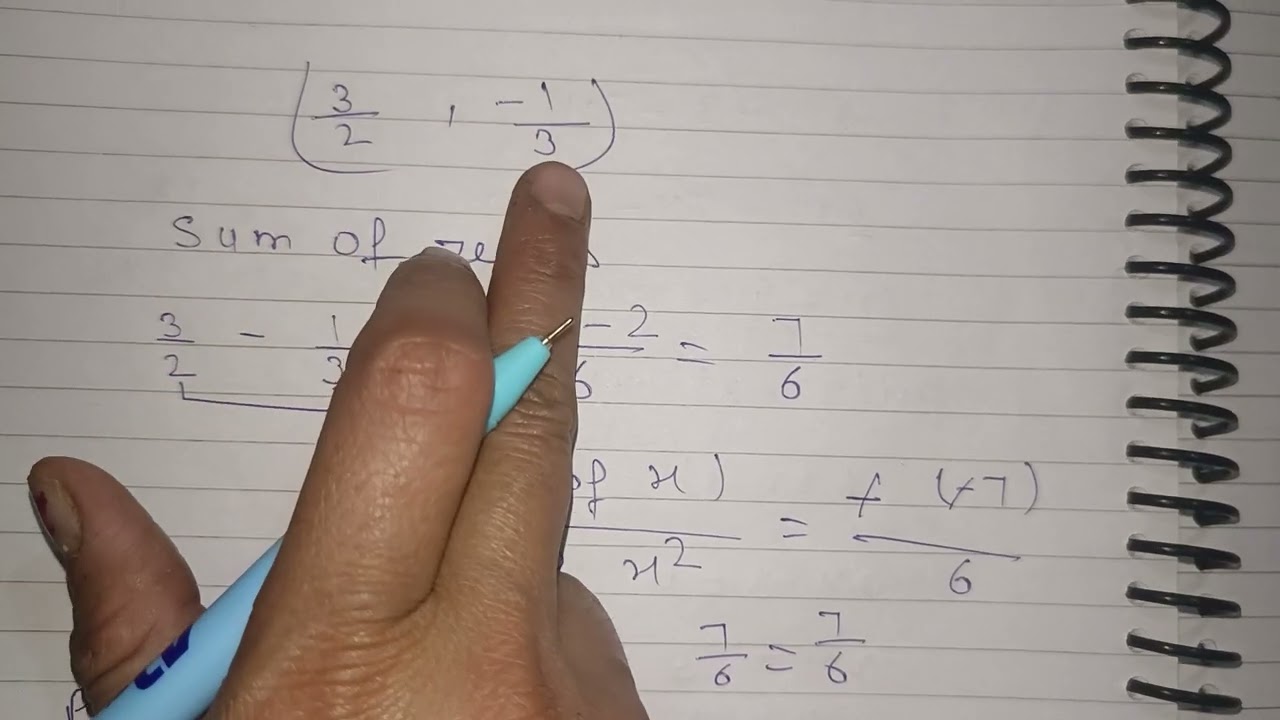 (3/2 , -1/3)
Sum Of
3/2 - 1/3 -2/6 = 7/6
of x) / x² = + (+7) / 6
7/6 = 7/6